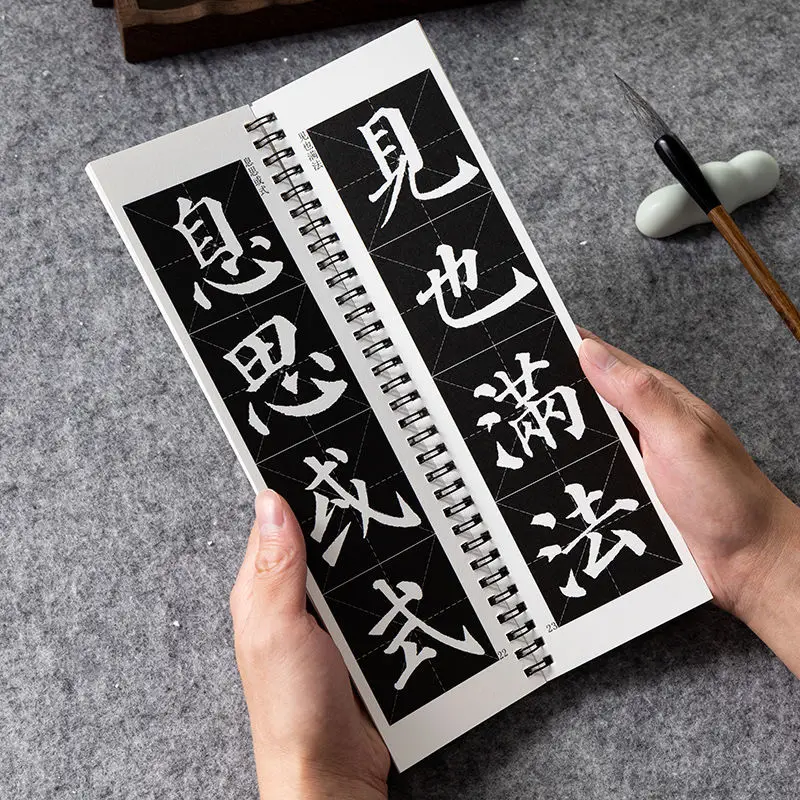 息思或式
息思或式
22
见也满法
見也滿法
23